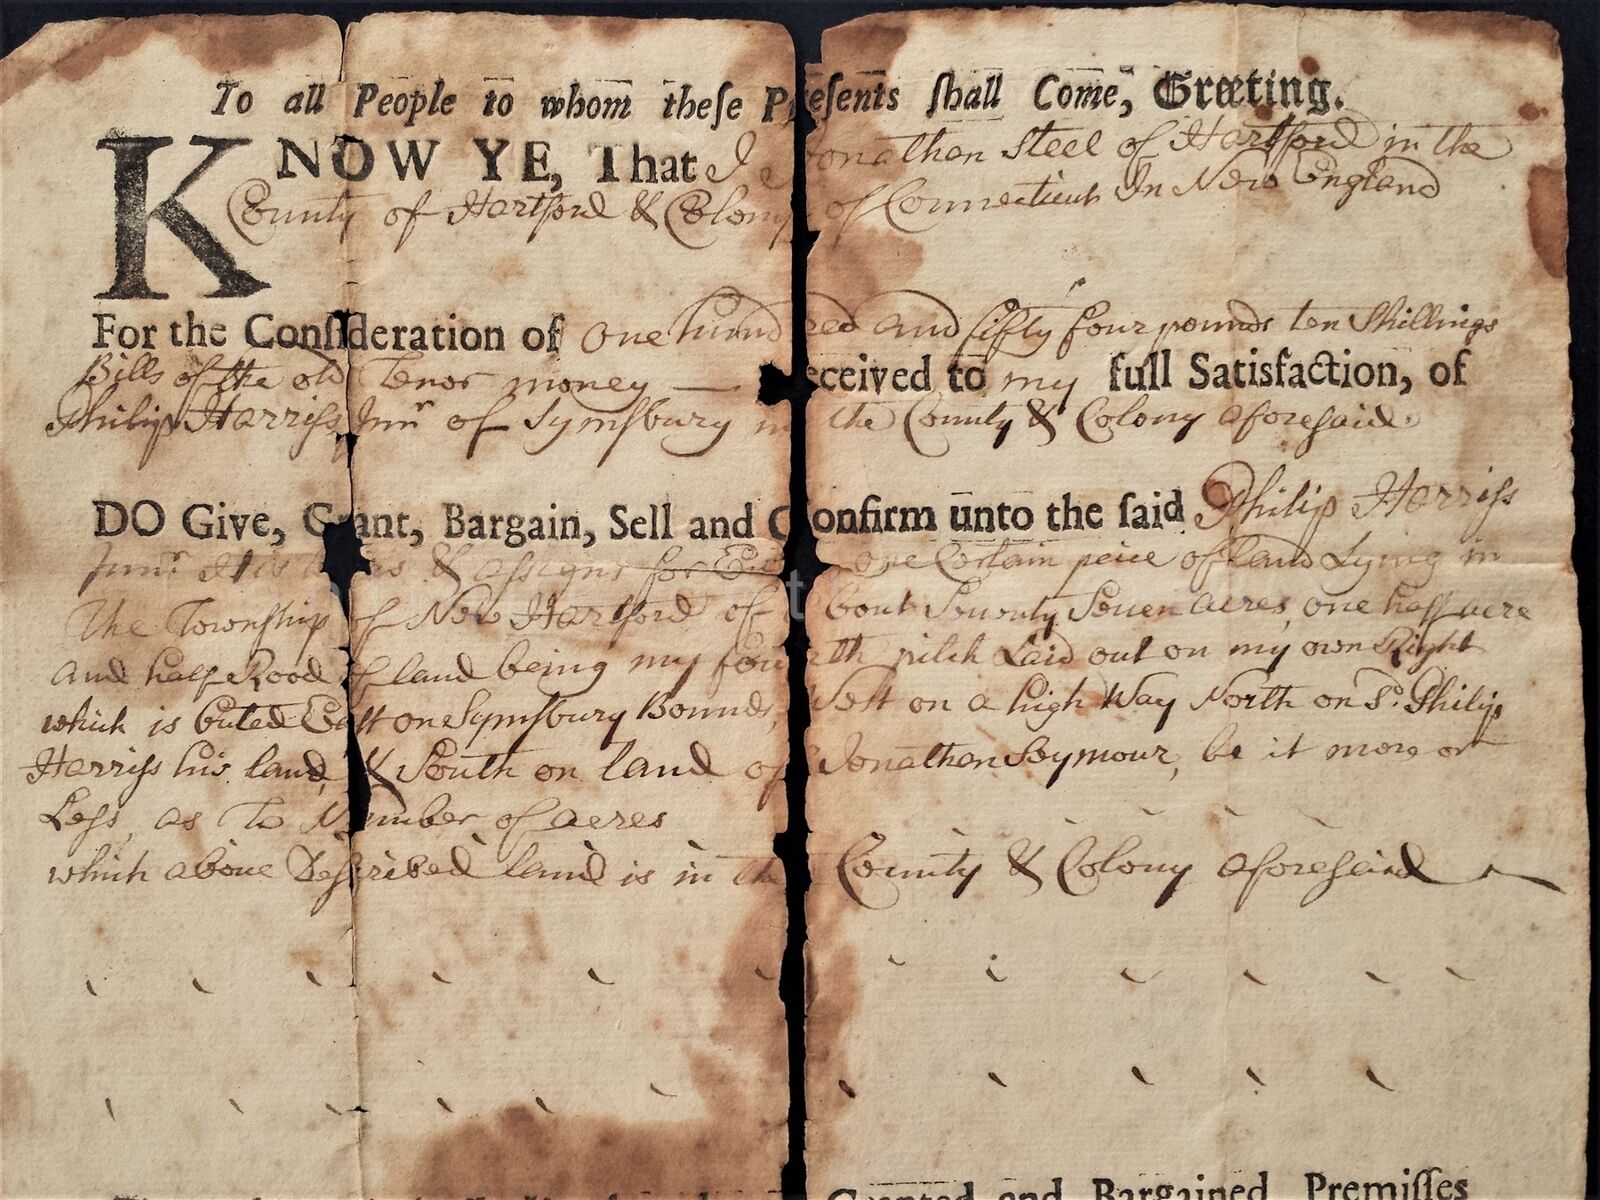 To all People to whom theſe Preſents ſhall Come, Greeting.
KNOW YE, That I Jonathan Steel of Hartford in the
County of Hartford & Colony of Connecticut In New England
For the Conſideration of one hundred and fifty four pounds ten Shillings
Bills of the old Tenor money — Received to my full Satisfaction, of
Philip Harriſs Junr of Symſbury in the County & Colony aforeſaid
DO Give, Grant, Bargain, Sell and Confirm unto the ſaid Philip Harriſs
Junr His Heirs & aſsigns for Ever one Certain peice of land Lying in
The Townſhip of New Hartford of about Seventy Seven acres, one half acre
and half Rood of land being my fourth pitch Laid out on my own Right
which is buted Eaſt on Symſbury Bounds, West on a high Way North on Sd. Philip
Harriſs his land, & South on land of Jonathan Seymour, be it more or
Leſs, as To Number of acres
which above Deſcribed land is in the County & Colony aforeſaid
Granted and Bargained Premiſſes